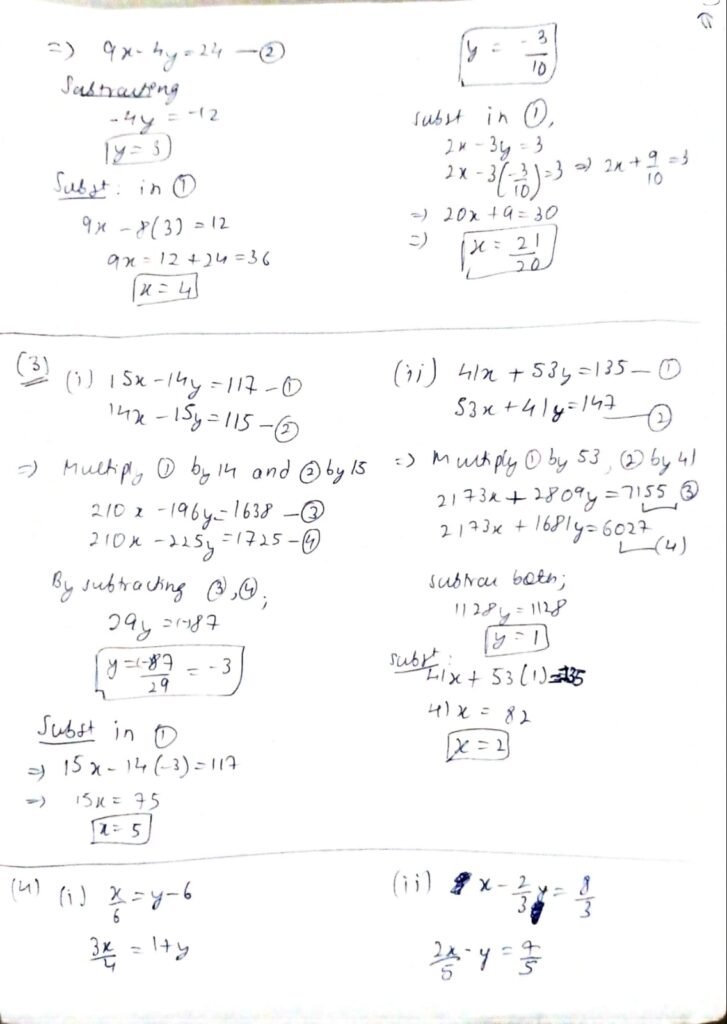 =) 9x - 4y = 24 — ②
Subtracting
-4y = -12
y = 3
Subst: in ①
9x - 8(3) = 12
9x = 12 + 24 = 36
x = 4
y = -3/10
subst in ①,
2x - 3y = 3
2x - 3(-3/10) = 3 => 2x + 9/10 = 3
=) 20x + 9 = 30
=) x = 21/20
(3) (i) 15x - 14y = 117 - ①
14x - 15y = 115 - ②
=) Multiply ① by 14 and ② by 15
210x - 196y = 1638 - ③
210x - 225y = 1725 - ④
By subtracting ③, ④;
29y = (-)87
y = (-)87/29 = -3
Subst in ①
=) 15x - 14(-3) = 117
=) 15x = 75
x = 5
(ii) 41x + 53y = 135 - ①
53x + 41y = 147 — ②
=) Multiply ① by 53, ② by 41
2173x + 2809y = 7155 ③
2173x + 1681y = 6027
(4)
subtrac both;
1128y = 1128
y = 1
subst:
41x + 53(1) = 135
41x = 82
x = 2
(4) (i) x/6 = y - 6
3x/4 = 1 + y
(ii) x - 2/3 y = 8/3
2x/5 - y = 7/5